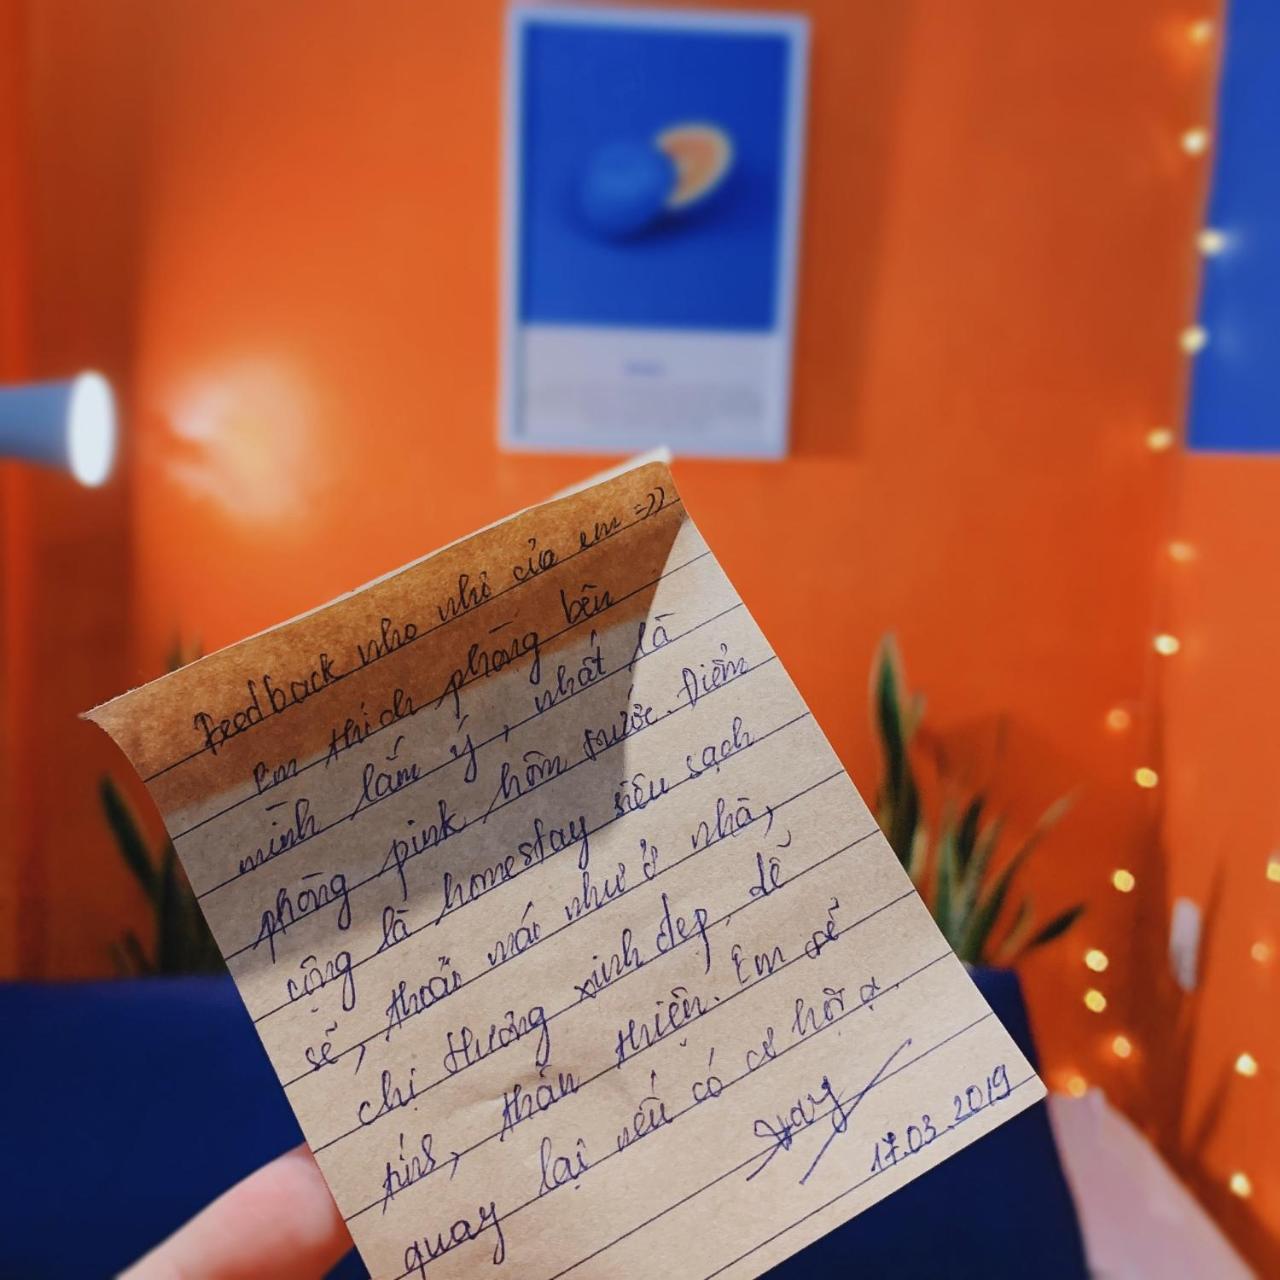 Feedback nho nhỏ của em =))
Em thích phòng bên
mình lắm ý, nhất là
phòng pink hôm trước. Điểm
cộng là homestay siêu sạch
sẽ, thoải mái như ở nhà,
chị Hương xinh đẹp, dễ
thương, thân thiện. Em sẽ
quay lại nếu có cơ hội ạ.
17.03.2019